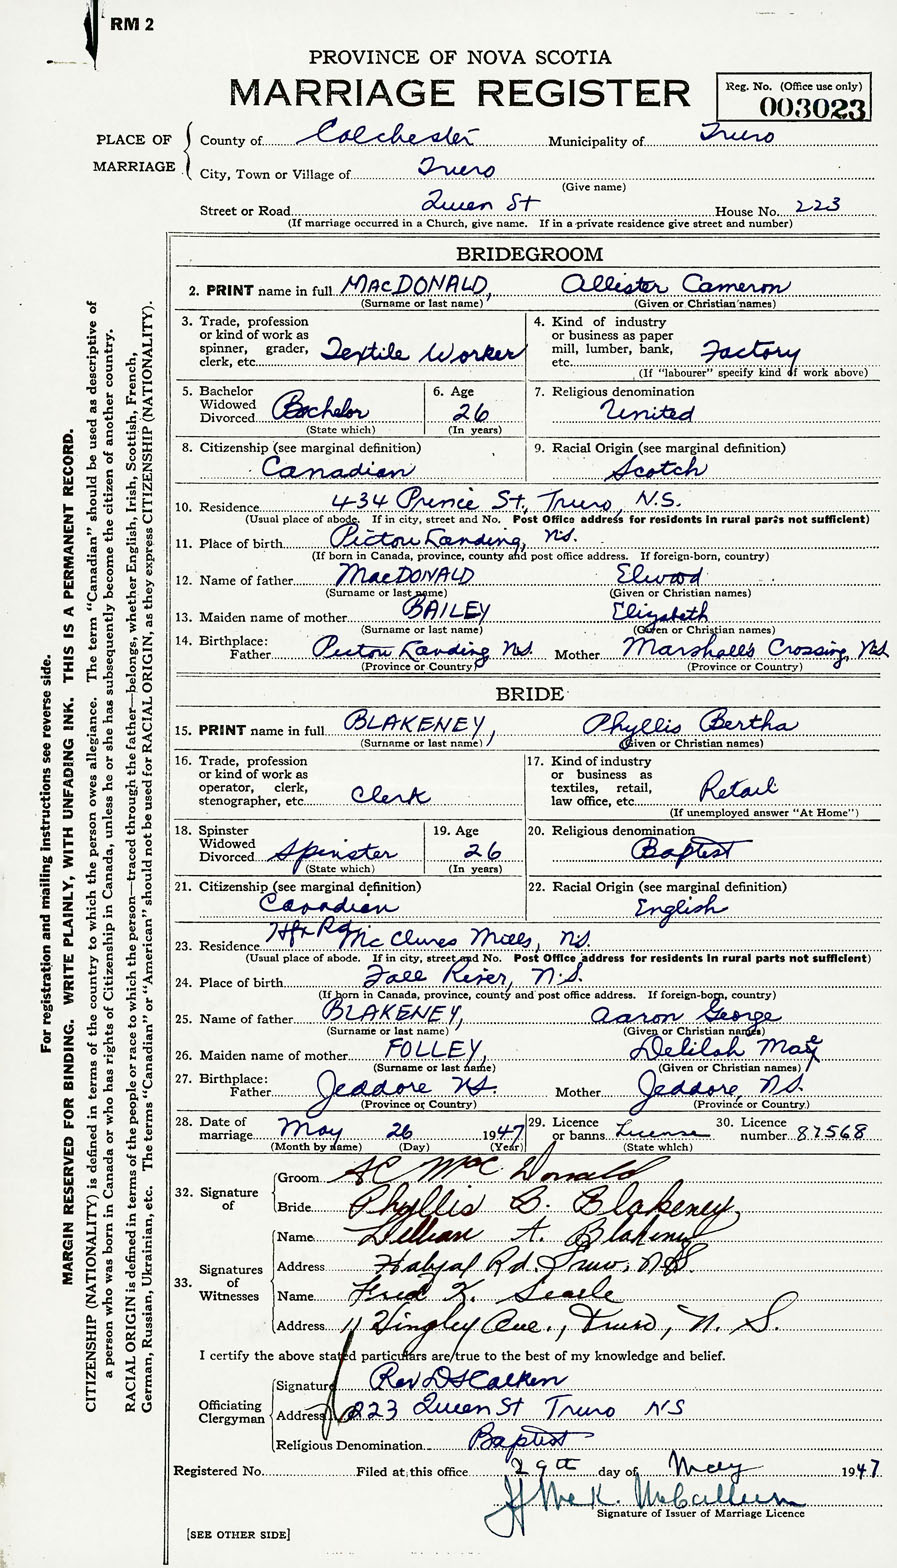 RM 2
PROVINCE OF NOVA SCOTIA
MARRIAGE REGISTER
Reg. No. (Office use only)
003023
PLACE OF MARRIAGE
County of Colchester Municipality of Truro
City, Town or Village of Truro
(Give name)
Street or Road Queen St House No. 223
(If marriage occurred in a Church, give name. If in a private residence give street and number)
BRIDEGROOM
2. PRINT name in full MacDONALD, Allister Cameron
(Surname or last name) (Given or Christian names)
3. Trade, profession or kind of work as spinner, grader, clerk, etc. Textile Worker
4. Kind of industry or business as paper mill, lumber, bank, etc. Factory
(If "labourer" specify kind of work above)
5. Bachelor Widowed Divorced Bachelor
(State which)
6. Age 26
(In years)
7. Religious denomination United
8. Citizenship (see marginal definition) Canadian
9. Racial Origin (see marginal definition) Scotch
10. Residence 434 Prince St, Truro, N.S.
(Usual place of abode. If in city, street and No. Post Office address for residents in rural parts not sufficient)
11. Place of birth Pictou Landing, N.S.
(If born in Canada, province, county and post office address. If foreign-born, country)
12. Name of father MacDONALD Elwood
(Surname or last name) (Given or Christian names)
13. Maiden name of mother BAILEY Elizabeth
(Surname or last name) (Given or Christian names)
14. Birthplace: Father Pictou Landing N.S. Mother Marshalls Crossing, N.S.
(Province or Country) (Province or Country)
BRIDE
15. PRINT name in full BLAKENEY, Phyllis Bertha
(Surname or last name) (Given or Christian names)
16. Trade, profession or kind of work as operator, clerk, stenographer, etc. Clerk
17. Kind of industry or business as textiles, retail, law office, etc. Retail
(If unemployed answer "At Home")
18. Spinster Widowed Divorced Spinster
(State which)
19. Age 26
(In years)
20. Religious denomination Baptist
21. Citizenship (see marginal definition) Canadian
22. Racial Origin (see marginal definition) English
23. Residence Hfx Rd McClures Mills, N.S.
(Usual place of abode. If in city, street and No. Post Office address for residents in rural parts not sufficient)
24. Place of birth Fall River, N.S.
(If born in Canada, province, county and post office address. If foreign-born, country)
25. Name of father BLAKENEY, Aaron George
(Surname or last name) (Given or Christian names)
26. Maiden name of mother FOLLEY, Delilah Mae
(Surname or last name) (Given or Christian names)
27. Birthplace: Father Jeddore N.S. Mother Jeddore, N.S.
(Province or Country) (Province or Country)
28. Date of marriage May 26 1947
(Month by name) (Day) (Year)
29. Licence or banns License
(State which)
30. Licence number 87568
32. Signature of
Groom A C MacDonald
Bride Phyllis B. Blakeney
33. Signatures of Witnesses
Name Lillian A. Blakeney
Address Rd. Truro, N.S.
Name Fred K. Searle
Address 11 Hingley Ave., Truro, N. S.
I certify the above stated particulars are true to the best of my knowledge and belief.
Officiating Clergyman
Signature Rev D S
Address 223 Queen St Truro NS
Religious Denomination Baptist
Registered No. Filed at this office 29th day of May 1947
McK. McCallum
Signature of Issuer of Marriage Licence
[SEE OTHER SIDE]
For registration and mailing instructions see reverse side.
MARGIN RESERVED FOR BINDING. WRITE PLAINLY, WITH UNFADING INK. THIS IS A PERMANENT RECORD.
CITIZENSHIP (NATIONALITY) is defined in terms of the country to which the person owes allegiance. The term "Canadian" should be used as descriptive of
a person who was born in Canada or who has rights of Citizenship in Canada, unless he or she has subsequently become the citizen of another country.
RACIAL ORIGIN is defined in terms of the people or race to which the person—traced through the father—belongs, whether English, Irish, Scottish, French,
German, Russian, Ukrainian, etc. The terms "Canadian" or "American" should not be used for RACIAL ORIGIN, as they express CITIZENSHIP (NATIONALITY).